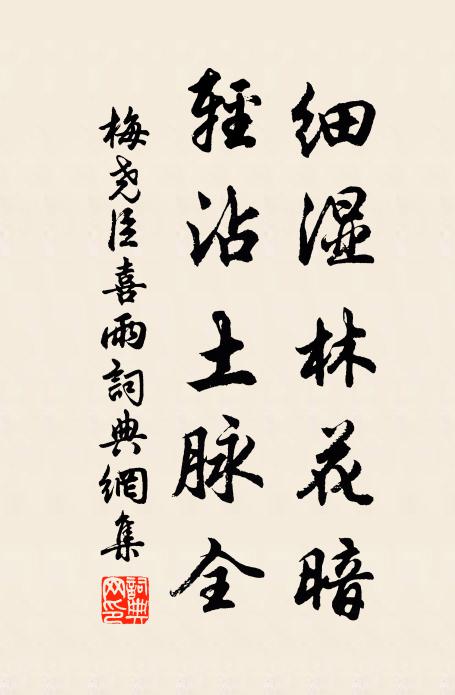 细湿林花暗
輕沾土脉全
梅尧臣喜雨詞典網集
詞典网印